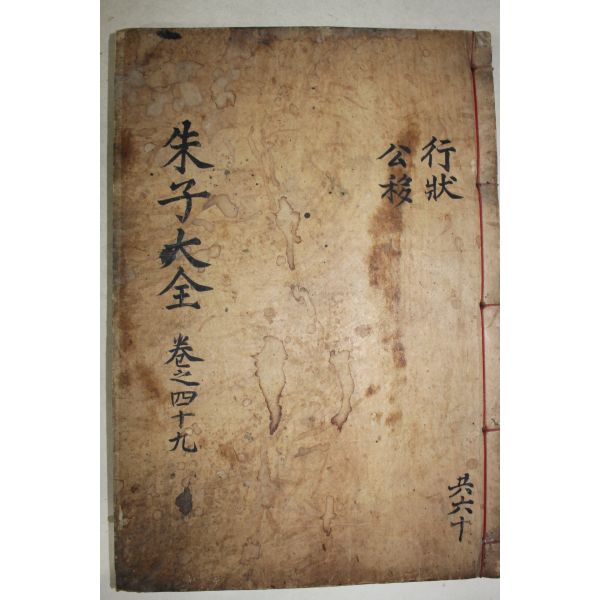 行狀
公移
朱子大全 卷之四十九
共六十